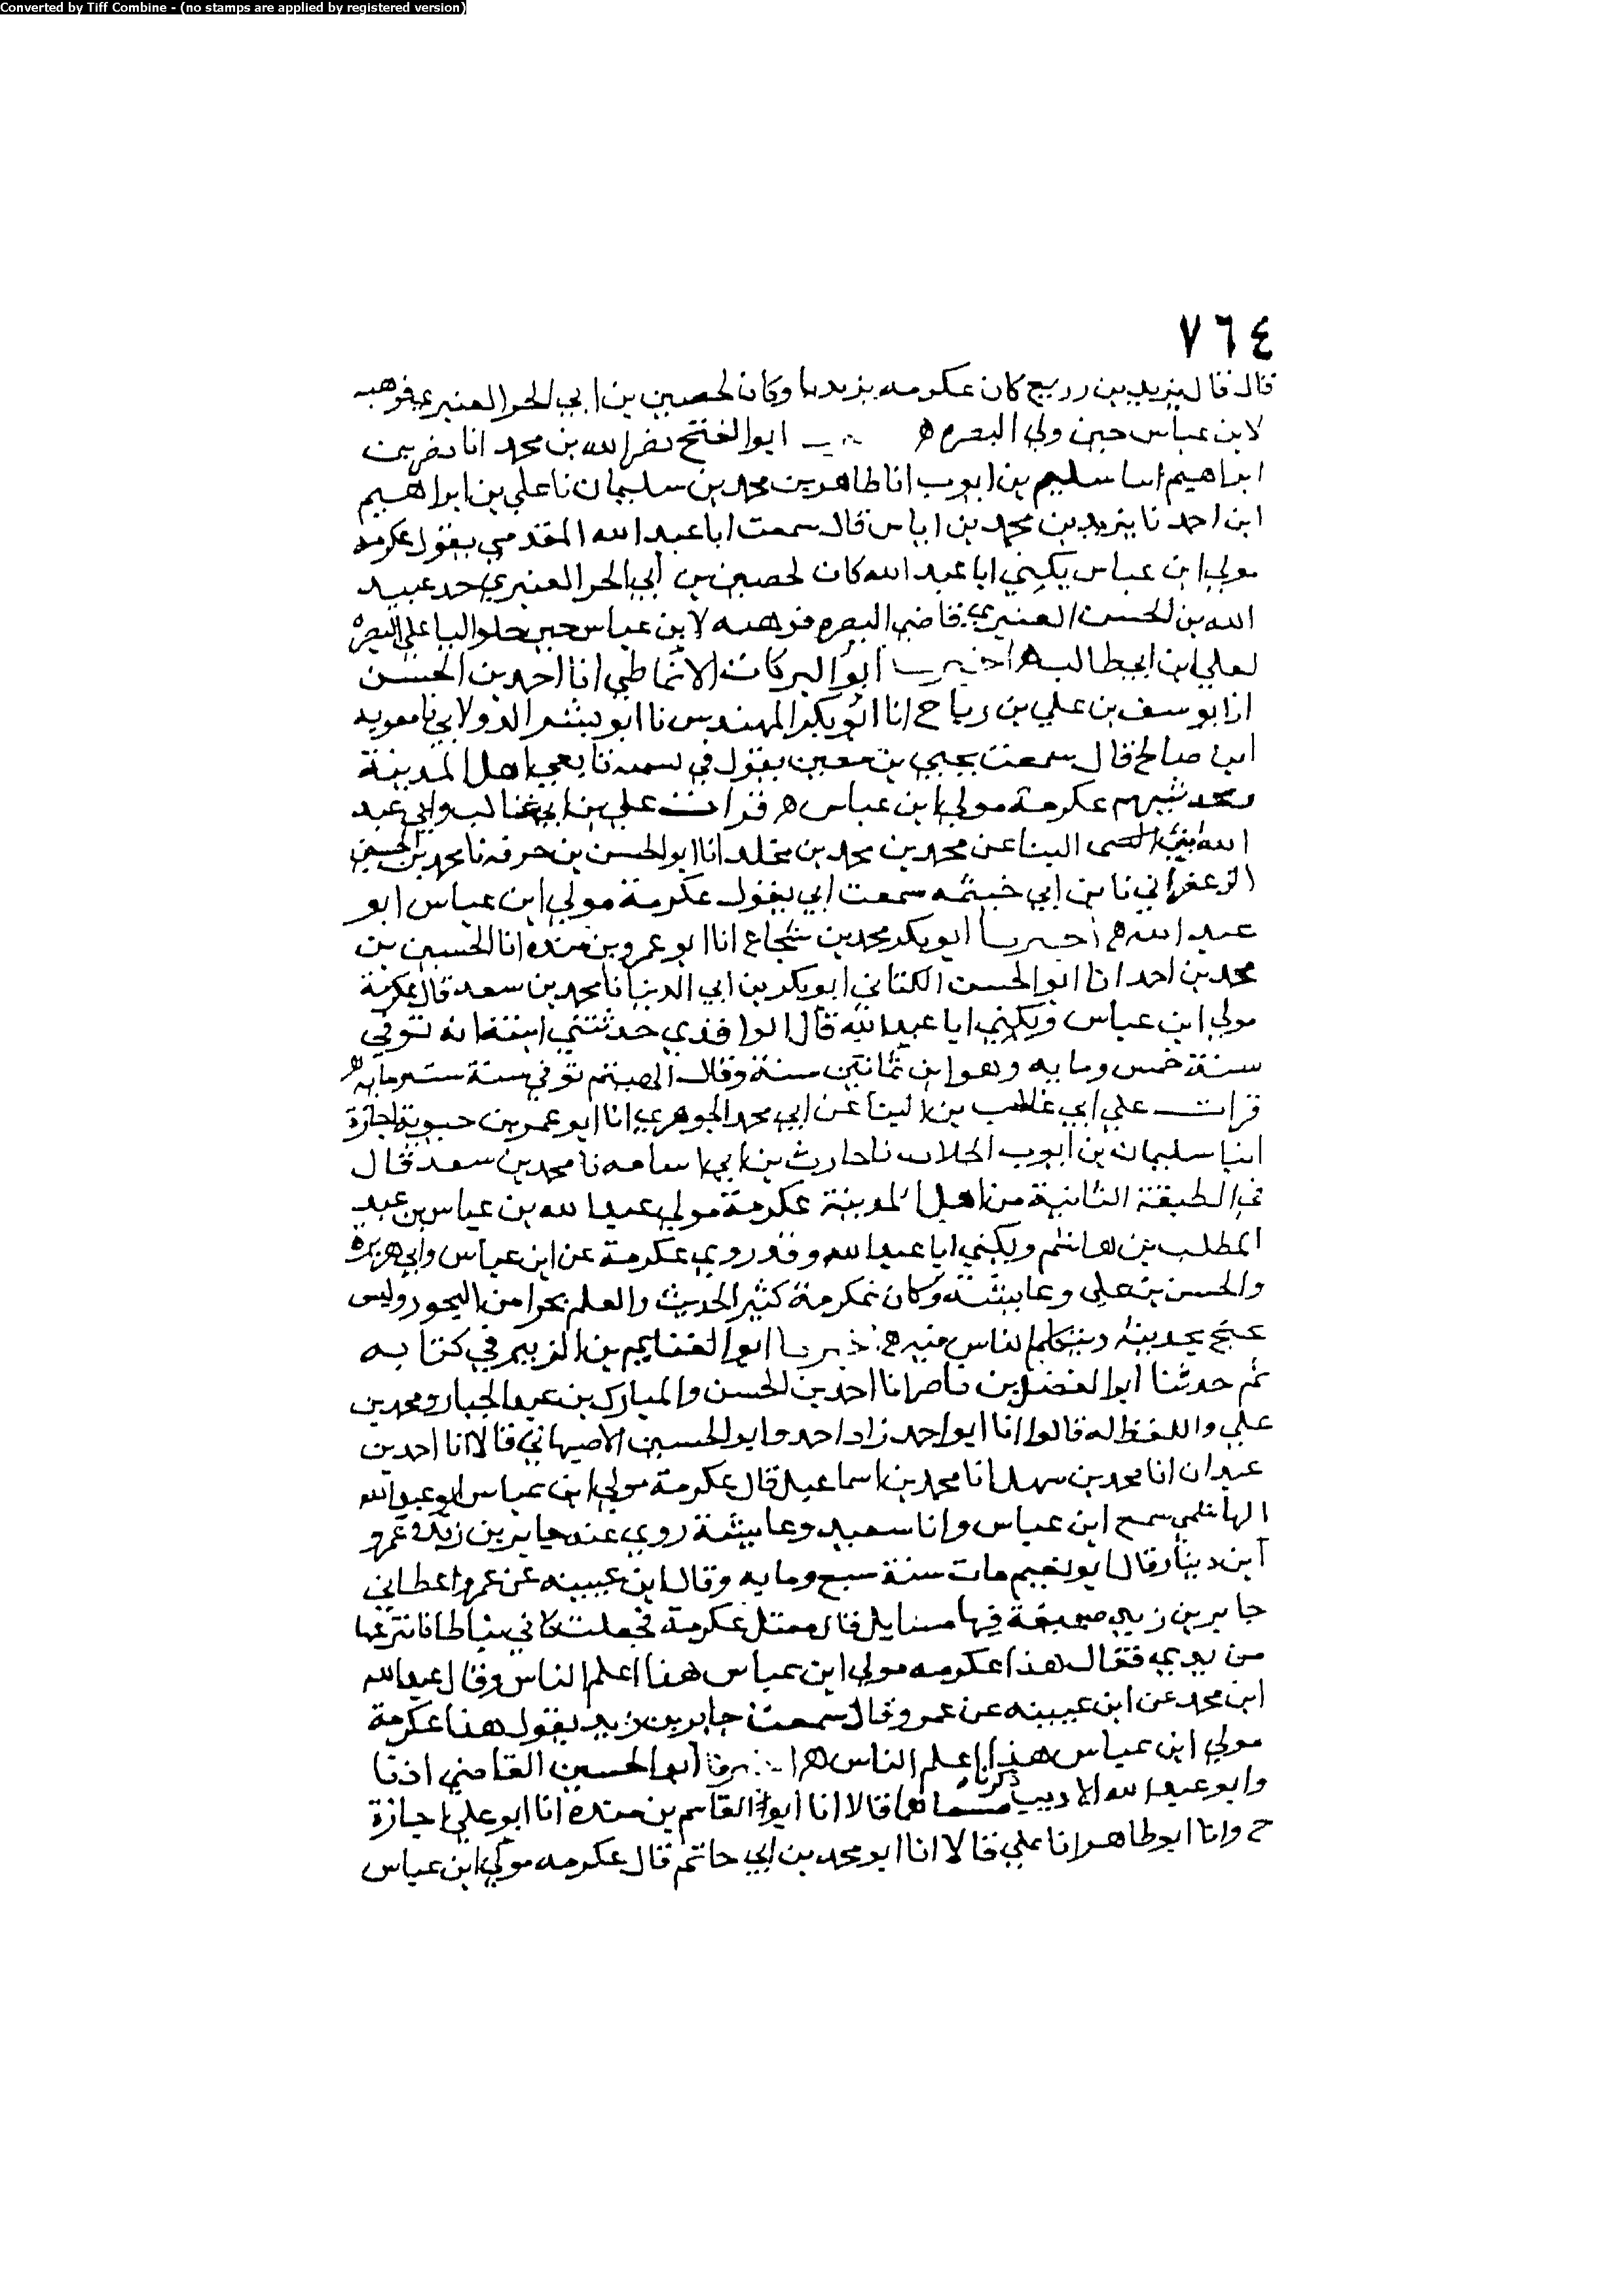 Converted by Tiff Combine - (no stamps are applied by registered version)
٧٦٤
قال قال يزيد بن زريع كان عكرمه بربريا وكان لحصين بن ابي الحر العنبري فوهبه
لابن عباس حين ولي البصره ابو الفتح نصر الله بن محمد انا نصر بن
ابراهيم انبا سليم بن ايوب انا طاهر بن محمد بن سليمان نا علي بن ابراهيم
ابن احمد نا يزيد بن محمد بن اياس قال سمعت ابا عبد الله المقدمي يقول عكرمه
مولي ابن عباس يكني ابا عبد الله كان لحصين بن ابي الحر العنبري جد عبيد
الله بن الحسن العنبري قاضي البصره فوهبه لابن عباس حين جا واليا علي البصره
لعلي ابن ابي طالب اخبرنا ابو البركات الانماطي انا احمد بن الحسن
انا يوسف بن علي بن رباح انا ابو بكر المهندس نا ابو بشر الدولابي نا معويه
ابن صالح قال سمعت يحيي بن معين يقول في تسميه تابعي اهل المدينة
ومحدثيهم عكرمة مولي ابن عباس قرات علي بن ابي غالب وابي عبد
الله البنا عن محمد بن محمد بن مخلد انا ابو الحسن بن خزفه نا محمد بن الحسين
الزعفراني نا بن ابي خيثمه سمعت ابي يقول عكرمة مولي ابن عباس ابو
عبد الله اخبرنا ابو بكر محمد بن شجاع انا ابو عمرو بن منده انا الحسين بن
محمد بن احمد انا ابو الحسن ابو بكر بن ابي الدنيا نا محمد بن سعد قال عكرمة
مولي ابن عباس ويكني ابا عبد الله قال الواقدي حدثتني ابنته انه توفي
سنة خمس ومايه وهو ابن ثمانين سنة وقال الهيثم توفي سنة ست ومايه
قرات علي ابي غالب بن البنا عن ابي محمد الجوهري انا ابو عمر بن حيوية اجازة
انبا سليمان بن ايوب الجلاب نا حارث بن ابي اسامه نا محمد بن سعد قال
في الطبقة الثانية من اهل المدينة عكرمة مولي عبد الله بن عباس بن عبد
المطلب بن هاشم ويكني ابا عبد الله وقد روي عكرمة عن ابن عباس وابي هريره
والحسن بن علي وعايشة وكان عكرمة كثير الحديث والعلم بحرا من البحور وليس
يحتج بحديثه ويتكلم الناس فيه اخبرنا ابو الغنايم بن الزبير في كتابه
ثم حدثنا ابو الفضل بن ناصر انا احمد بن الحسن والمبارك بن عبد الجبار ومحمد بن
علي واللفظ له قالوا انا ابو احمد زاد احمد وابو الحسين الاصبهاني قالا انا احمد بن
عبدان انا محمد بن سهل انا محمد بن اسماعيل قال عكرمة مولي ابن عباس ابو عبد الله
الهاشمي سمع ابن عباس وابا سعيد وعايشة روي عنه جابر بن زيد وعمرو
ابن دينار قال ابو نعيم مات سنة سبع ومايه وقال ابن عيينه عن عمرو اعطاني
جابر بن زيد صحيفة فيها مسايل قال سل عكرمة فجعلت كاني نتباطا فانتزعها
من يدي فقال هذا عكرمه مولي ابن عباس هذا اعلم الناس وقال عبد الله
ابن محمد عن ابن عيينه عن عمرو قال سمعت جابر بن زيد يقول هذا عكرمة
مولي ابن عباس هذا اعلم الناس اخبرنا ابو الحسين القاضي اذنا
وابو عبد الله الاديب قالا انا ابو القاسم بن منده انا ابو علي اجازة
ح وانا ابو طاهر انا علي قالا انا ابو محمد بن ابي حاتم قال عكرمه مولي ابن عباس